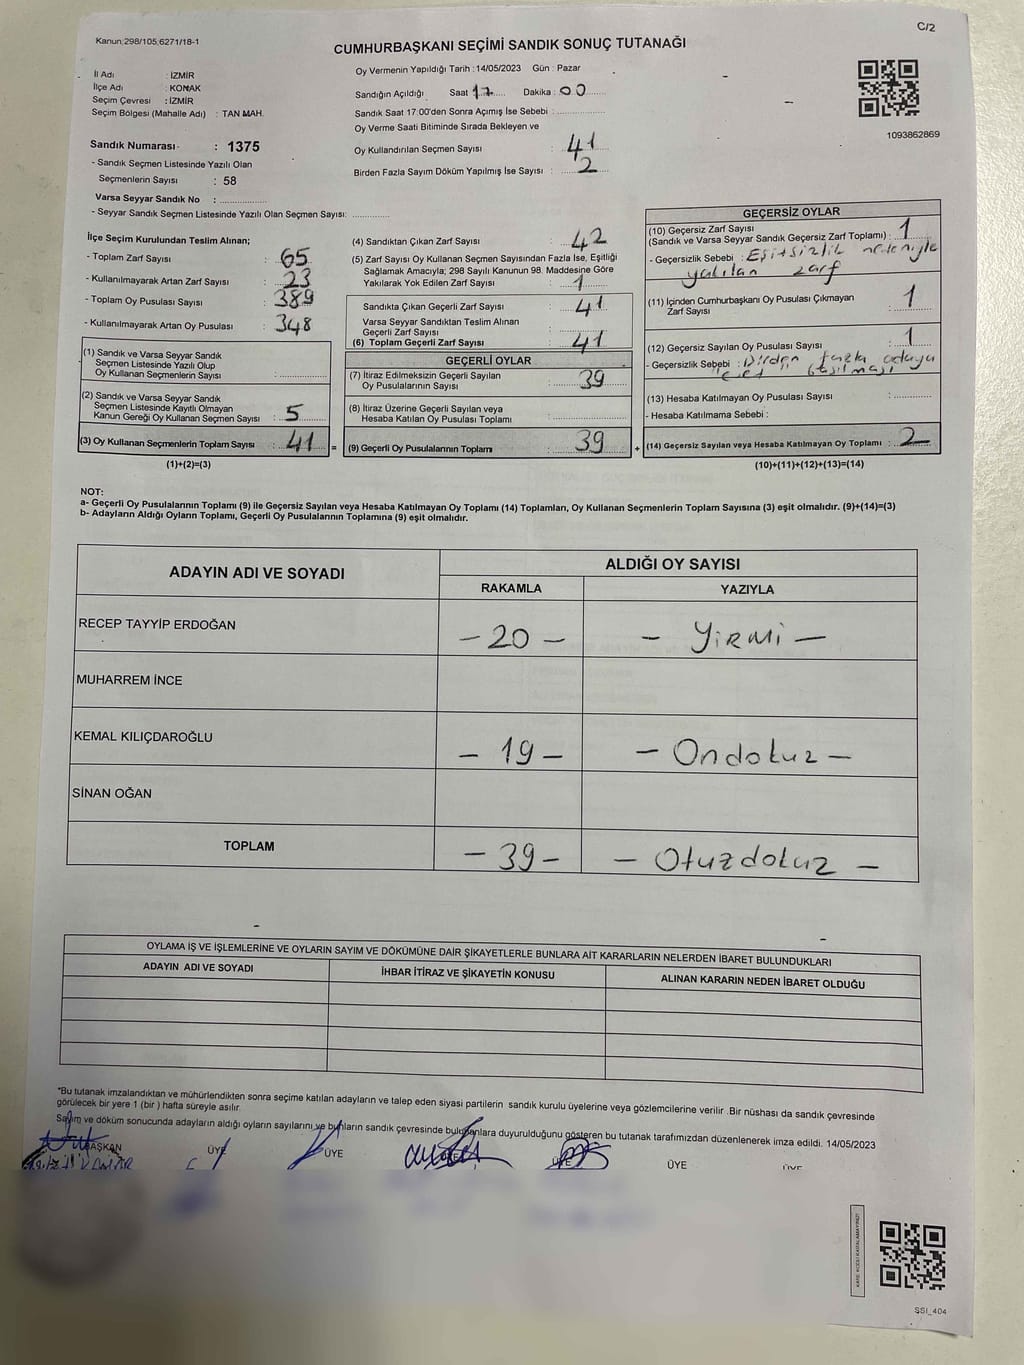 C/2
Kanun:298/105,6271/18-1
CUMHURBAŞKANI SEÇİMİ SANDIK SONUÇ TUTANAĞI
İl Adı : İZMİR
İlçe Adı : KONAK
Seçim Çevresi : İZMİR
Seçim Bölgesi (Mahalle Adı) : TAN MAH.
Sandık Numarası : 1375
- Sandık Seçmen Listesinde Yazılı Olan
Seçmenlerin Sayısı : 58
Varsa Seyyar Sandık No :
- Seyyar Sandık Seçmen Listesinde Yazılı Olan Seçmen Sayısı:
Oy Vermenin Yapıldığı Tarih : 14/05/2023 Gün : Pazar
Sandığın Açıldığı Saat 17 Dakika : 00
Sandık Saat 17:00'den Sonra Açımış İse Sebebi :
Oy Verme Saati Bitiminde Sırada Bekleyen ve
Oy Kullandırılan Seçmen Sayısı : 41
Birden Fazla Sayım Döküm Yapılmış İse Sayısı : 2
1093862869
İlçe Seçim Kurulundan Teslim Alınan;
- Toplam Zarf Sayısı : 65
- Kullanılmayarak Artan Zarf Sayısı : 23
- Toplam Oy Pusulası Sayısı : 389
- Kullanılmayarak Artan Oy Pusulası : 348
(1) Sandık ve Varsa Seyyar Sandık
Seçmen Listesinde Yazılı Olup
Oy Kullanan Seçmenlerin Sayısı :
(2) Sandık ve Varsa Seyyar Sandık
Seçmen Listesinde Kayıtlı Olmayan
Kanun Gereği Oy Kullanan Seçmen Sayısı : 5
(3) Oy Kullanan Seçmenlerin Toplam Sayısı : 41 =
(1)+(2)=(3)
(4) Sandıktan Çıkan Zarf Sayısı : 42
(5) Zarf Sayısı Oy Kullanan Seçmen Sayısından Fazla İse, Eşitliği
Sağlamak Amacıyla; 298 Sayılı Kanunun 98. Maddesine Göre
Yakılarak Yok Edilen Zarf Sayısı : 1
Sandıkta Çıkan Geçerli Zarf Sayısı : 41
Varsa Seyyar Sandıktan Teslim Alınan
Geçerli Zarf Sayısı :
(6) Toplam Geçerli Zarf Sayısı : 41
GEÇERLİ OYLAR
(7) İtiraz Edilmeksizin Geçerli Sayılan
Oy Pusulalarının Sayısı : 39
(8) İtiraz Üzerine Geçerli Sayılan veya
Hesaba Katılan Oy Pusulası Toplamı :
(9) Geçerli Oy Pusulalarının Toplamı : 39 +
GEÇERSİZ OYLAR
(10) Geçersiz Zarf Sayısı
(Sandık ve Varsa Seyyar Sandık Geçersiz Zarf Toplamı) : 1
- Geçersizlik Sebebi : Eşitsizlik nedeniyle
yakılan zarf
(11) İçinden Cumhurbaşkanı Oy Pusulası Çıkmayan
Zarf Sayısı : 1
(12) Geçersiz Sayılan Oy Pusulası Sayısı : 1
- Geçersizlik Sebebi : Birden fazla adaya
(13) Hesaba Katılmayan Oy Pusulası Sayısı :
- Hesaba Katılmama Sebebi :
(14) Geçersiz Sayılan veya Hesaba Katılmayan Oy Toplamı : 2
(10)+(11)+(12)+(13)=(14)
NOT:
a- Geçerli Oy Pusulalarının Toplamı (9) ile Geçersiz Sayılan veya Hesaba Katılmayan Oy Toplamı (14) Toplamları, Oy Kullanan Seçmenlerin Toplam Sayısına (3) eşit olmalıdır. (9)+(14)=(3)
b- Adayların Aldığı Oyların Toplamı, Geçerli Oy Pusulalarının Toplamına (9) eşit olmalıdır.
ADAYIN ADI VE SOYADI
ALDIĞI OY SAYISI
RAKAMLA YAZIYLA
RECEP TAYYİP ERDOĞAN - 20 - - YİRMİ -
MUHARREM İNCE
KEMAL KILIÇDAROĞLU - 19 - - Ondokuz -
SİNAN OĞAN
TOPLAM - 39 - - Otuzdokuz -
OYLAMA İŞ VE İŞLEMLERİNE VE OYLARIN SAYIM VE DÖKÜMÜNE DAİR ŞİKAYETLERLE BUNLARA AİT KARARLARIN NELERDEN İBARET BULUNDUKLARI
ADAYIN ADI VE SOYADI İHBAR İTİRAZ VE ŞİKAYETİN KONUSU ALINAN KARARIN NEDEN İBARET OLDUĞU
*Bu tutanak imzalandıktan ve mühürlendikten sonra seçime katılan adayların ve talep eden siyasi partilerin sandık kurulu üyelerine veya gözlemcilerine verilir .Bir nüshası da sandık çevresinde
görülecek bir yere 1 (bir ) hafta süreyle asılır.
Sayım ve döküm sonucunda adayların aldığı oyların sayılarını ve bunların sandık çevresinde bulunanlara duyurulduğunu gösteren bu tutanak tarafımızdan düzenlenerek imza edildi. 14/05/2023
BAŞKAN ÜYE ÜYE ÜYE ÜYE ÜYE
SSI_404